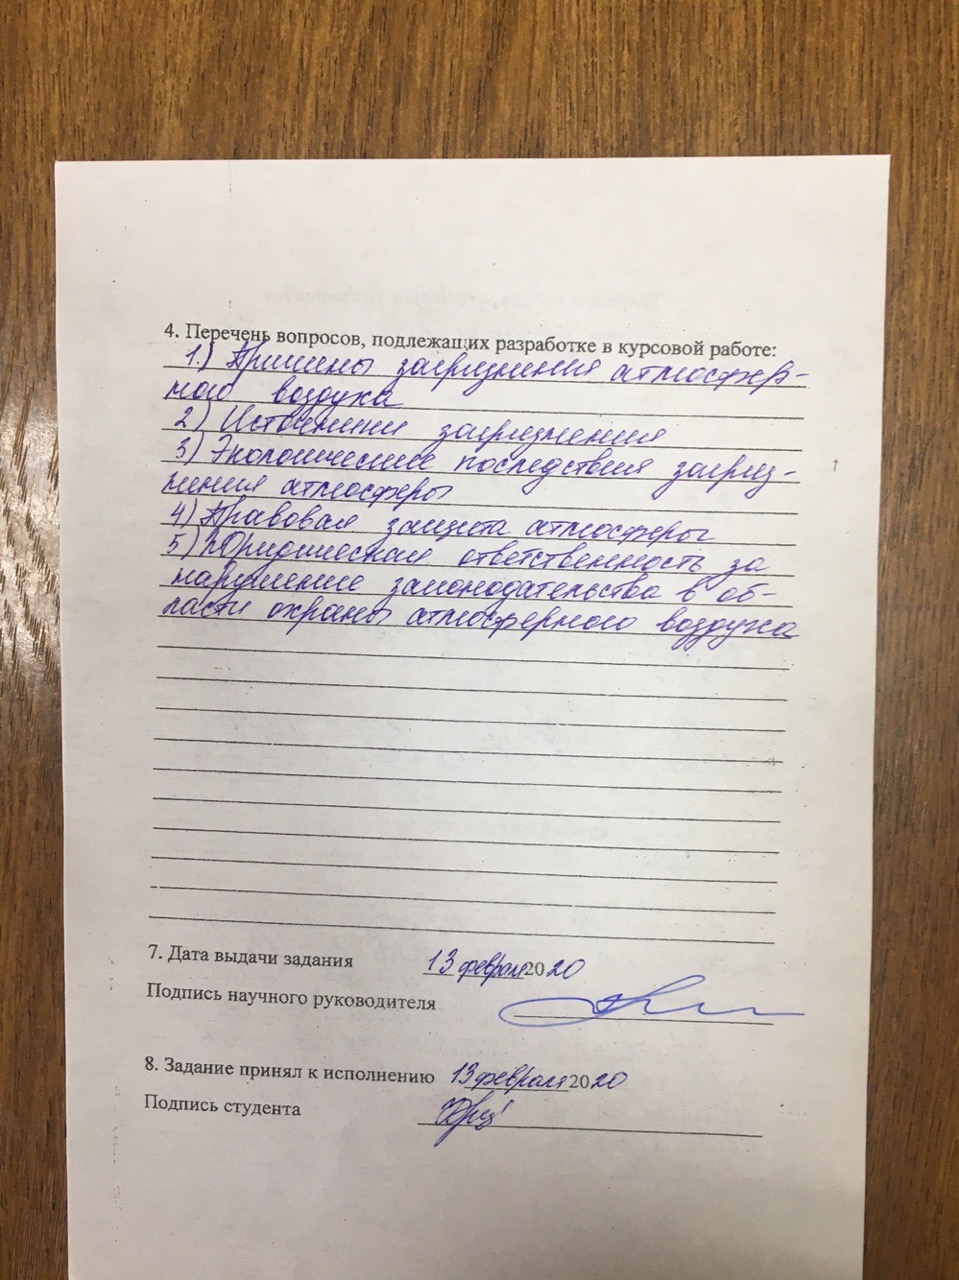 4. Перечень вопросов, подлежащих разработке в курсовой работе:
1.) Причины загрязнения атмосфер-
ного воздуха
2) Источники загрязнения
3) Экологические последствия загряз-
нения атмосферы
4) Правовая защита атмосферы
5) Юридическая ответственность за
нарушение законодательства в об-
ласти охраны атмосферного воздуха
7. Дата выдачи задания 13 февраля 2020
Подпись научного руководителя
8. Задание принял к исполнению 13 февраля 2020
Подпись студента